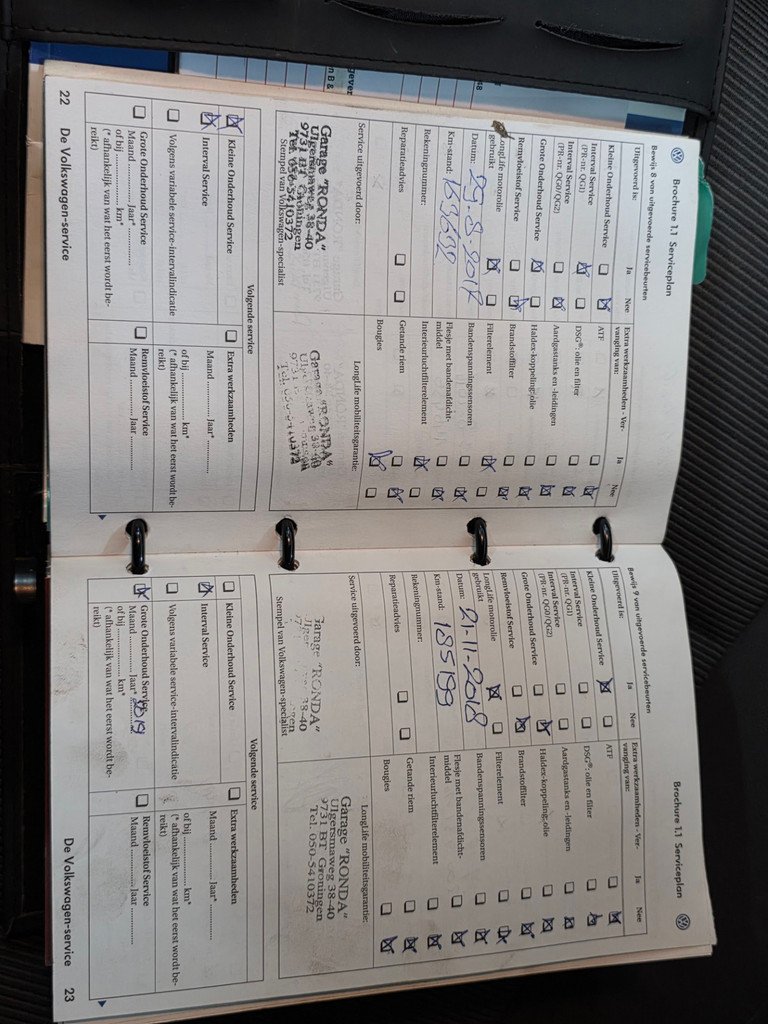 Brochure 1.1 Serviceplan
Bewijs 8 van uitgevoerde servicebeurten
Uitgevoerd is:
Ja
Nee
Kleine Onderhoud Service
Interval Service
(PR-nr. QG1)
Interval Service
(PR-nr. QG0/QG2)
Grote Onderhoud Service
Remvloeistof Service
LongLife motorolie
gebruikt
Datum: 29-8-2017
Km-stand: 163632
Rekeningnummer:
Reparatieadvies
Extra werkzaamheden - Ver-
vanging van:
Ja
Nee
ATF
DSG®: olie en filter
Aardgastanks en -leidingen
Haldex-koppeling: olie
Brandstoffilter
Filterelement
Bandenspanningssensoren
Flesje met bandenafdicht-
middel
Interieurluchtfilterelement
Getande riem
Bougies
Service uitgevoerd door:
Garage "RONDA"
Ulgersmaweg 38-40
9731 BT Groningen
Tel. 050-5410372
Stempel van Volkswagen-specialist
LongLife mobiliteitsgarantie:
Garage "RONDA"
Ulgersmaweg 38-40
9731 BT Groningen
Tel. 050-5410372
Volgende service
Kleine Onderhoud Service
Interval Service
Volgens variabele service-intervalindicatie
Grote Onderhoud Service
Maand ............ Jaar* ............
of bij ............ km*
(* afhankelijk van wat het eerst wordt be-
reikt)
Extra werkzaamheden
Maand ............ Jaar* ............
of bij ............ km*
(* afhankelijk van wat het eerst wordt be-
reikt)
Remvloeistof Service
Maand ............ Jaar ............
22 De Volkswagen-service
Brochure 1.1 Serviceplan
Bewijs 9 van uitgevoerde servicebeurten
Uitgevoerd is:
Ja
Nee
Kleine Onderhoud Service
Interval Service
(PR-nr. QG1)
Interval Service
(PR-nr. QG0/QG2)
Grote Onderhoud Service
Remvloeistof Service
LongLife motorolie
gebruikt
Datum: 21-11-2018
Km-stand: 185199
Rekeningnummer:
Reparatieadvies
Extra werkzaamheden - Ver-
vanging van:
Ja
Nee
ATF
DSG®: olie en filter
Aardgastanks en -leidingen
Haldex-koppeling: olie
Brandstoffilter
Filterelement
Bandenspanningssensoren
Flesje met bandenafdicht-
middel
Interieurluchtfilterelement
Getande riem
Bougies
Service uitgevoerd door:
Garage "RONDA"
Ulgersmaweg 38-40
Stempel van Volkswagen-specialist
LongLife mobiliteitsgarantie:
Garage "RONDA"
Ulgersmaweg 38-40
9731 BT Groningen
Tel. 050-5410372
Volgende service
Kleine Onderhoud Service
Interval Service
Volgens variabele service-intervalindicatie
Grote Onderhoud Service
Maand ............ Jaar* 2019
of bij ............ km*
(* afhankelijk van wat het eerst wordt be-
reikt)
Extra werkzaamheden
Maand ............ Jaar* ............
of bij ............ km*
(* afhankelijk van wat het eerst wordt be-
reikt)
Remvloeistof Service
Maand ............ Jaar ............
De Volkswagen-service 23